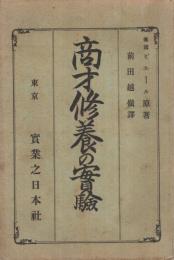 米國ビエール原著
前田越嶺譯
商才修養の實驗
東京
實業之日本社